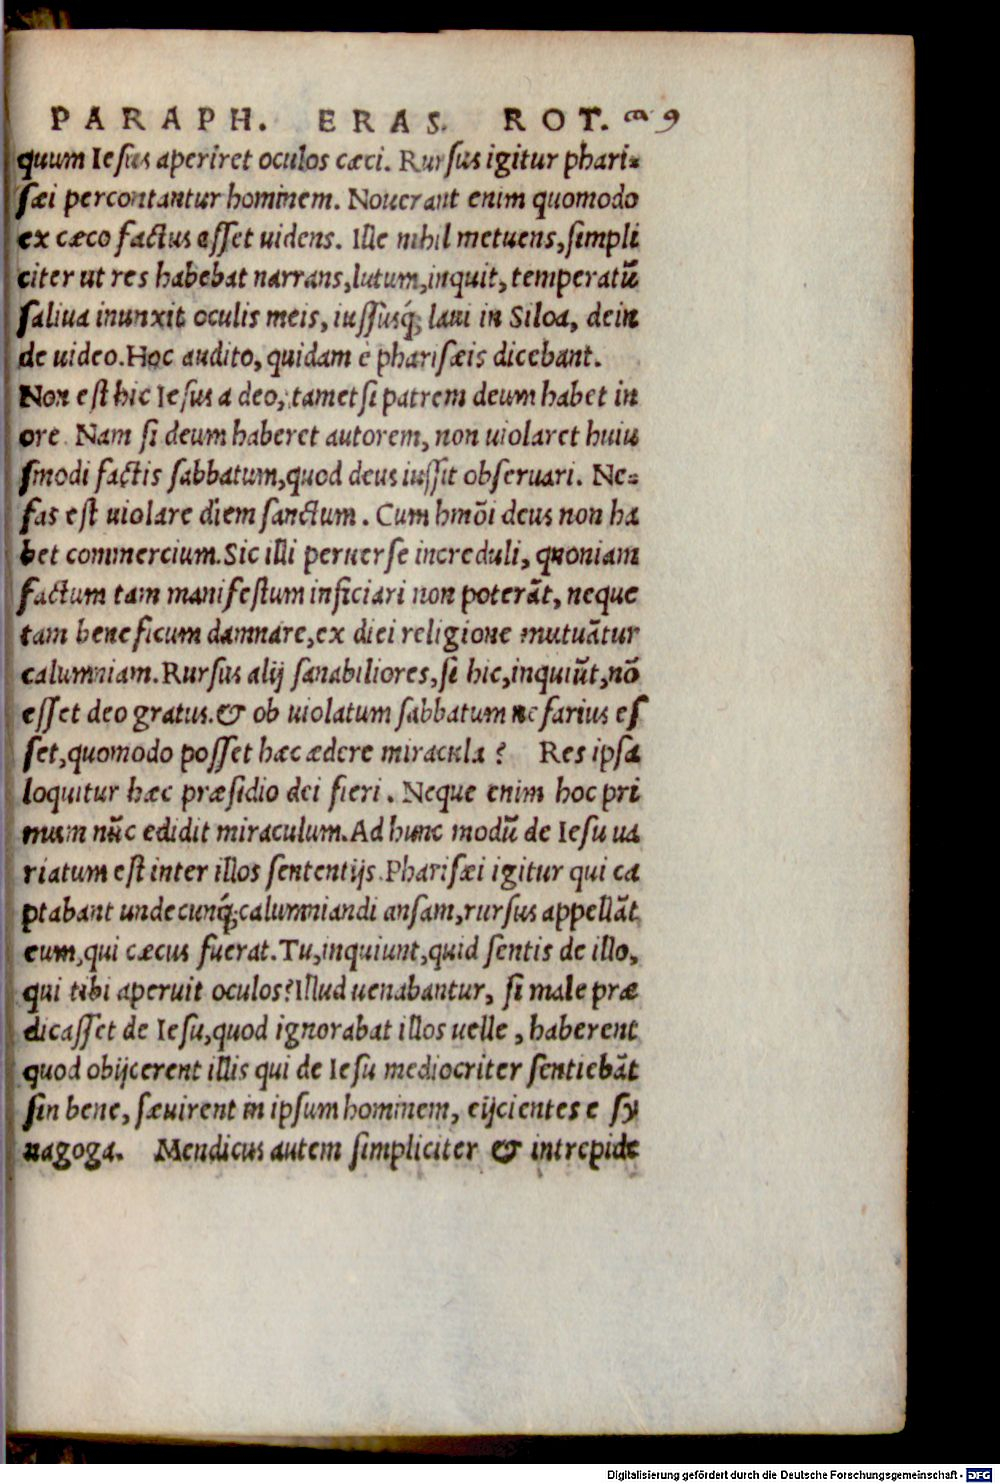 PARAPH. ERAS. ROT. 9
quum Iesus aperiret oculos cæci. Rursus igitur phari=
sæi percontantur hominem. Nouerant enim quomodo
ex cæco factus esset uidens. Ille nihil metuens, simpli
citer ut res habebat narrans, lutum, inquit, temperatū
saliua inunxit oculis meis, iussusq́; laui in Siloa, dein
de uideo. Hoc audito, quidam è pharisæis dicebant.
Non est hic Iesus a deo, tametsi patrem deum habet in
ore. Nam si deum haberet autorem, non uiolaret huiu
smodi factis sabbatum, quod deus iussit obseruari. Ne=
fas est uiolare diem sanctum. Cum hmōi deus non ha
bet commercium. Sic illi peruerse increduli, quoniam
factum tam manifestum inficiari non poterāt, neque
tam beneficum damnare, ex diei religione mutuātur
calumniam. Rursus alij sanabiliores, si hic, inquiūt, nō
esset deo gratus. & ob uiolatum sabbatum nefarius es
set, quomodo posset hæc ædere miracula? Res ipsa
loquitur hæc præsidio dei fieri. Neque enim hoc pri
mum nūc edidit miraculum. Ad hunc modū de Iesu ua
riatum est inter illos sententijs. Pharisæi igitur qui ca
ptabant undecunq́; calumniandi ansam, rursus appellāt
eum, qui cæcus fuerat. Tu, inquiunt, quid sentis de illo,
qui tibi aperuit oculos? Illud uenabantur, si male præ
dicasset de Iesu, quod ignorabat illos uelle, haberent
quod obijcerent illis qui de Iesu mediocriter sentiebāt
sin bene, sæuirent in ipsum hominem, eijcientes e sy
nagoga. Mendicus autem simpliciter & intrepide
Digitalisierung gefördert durch die Deutsche Forschungsgemeinschaft - DFG